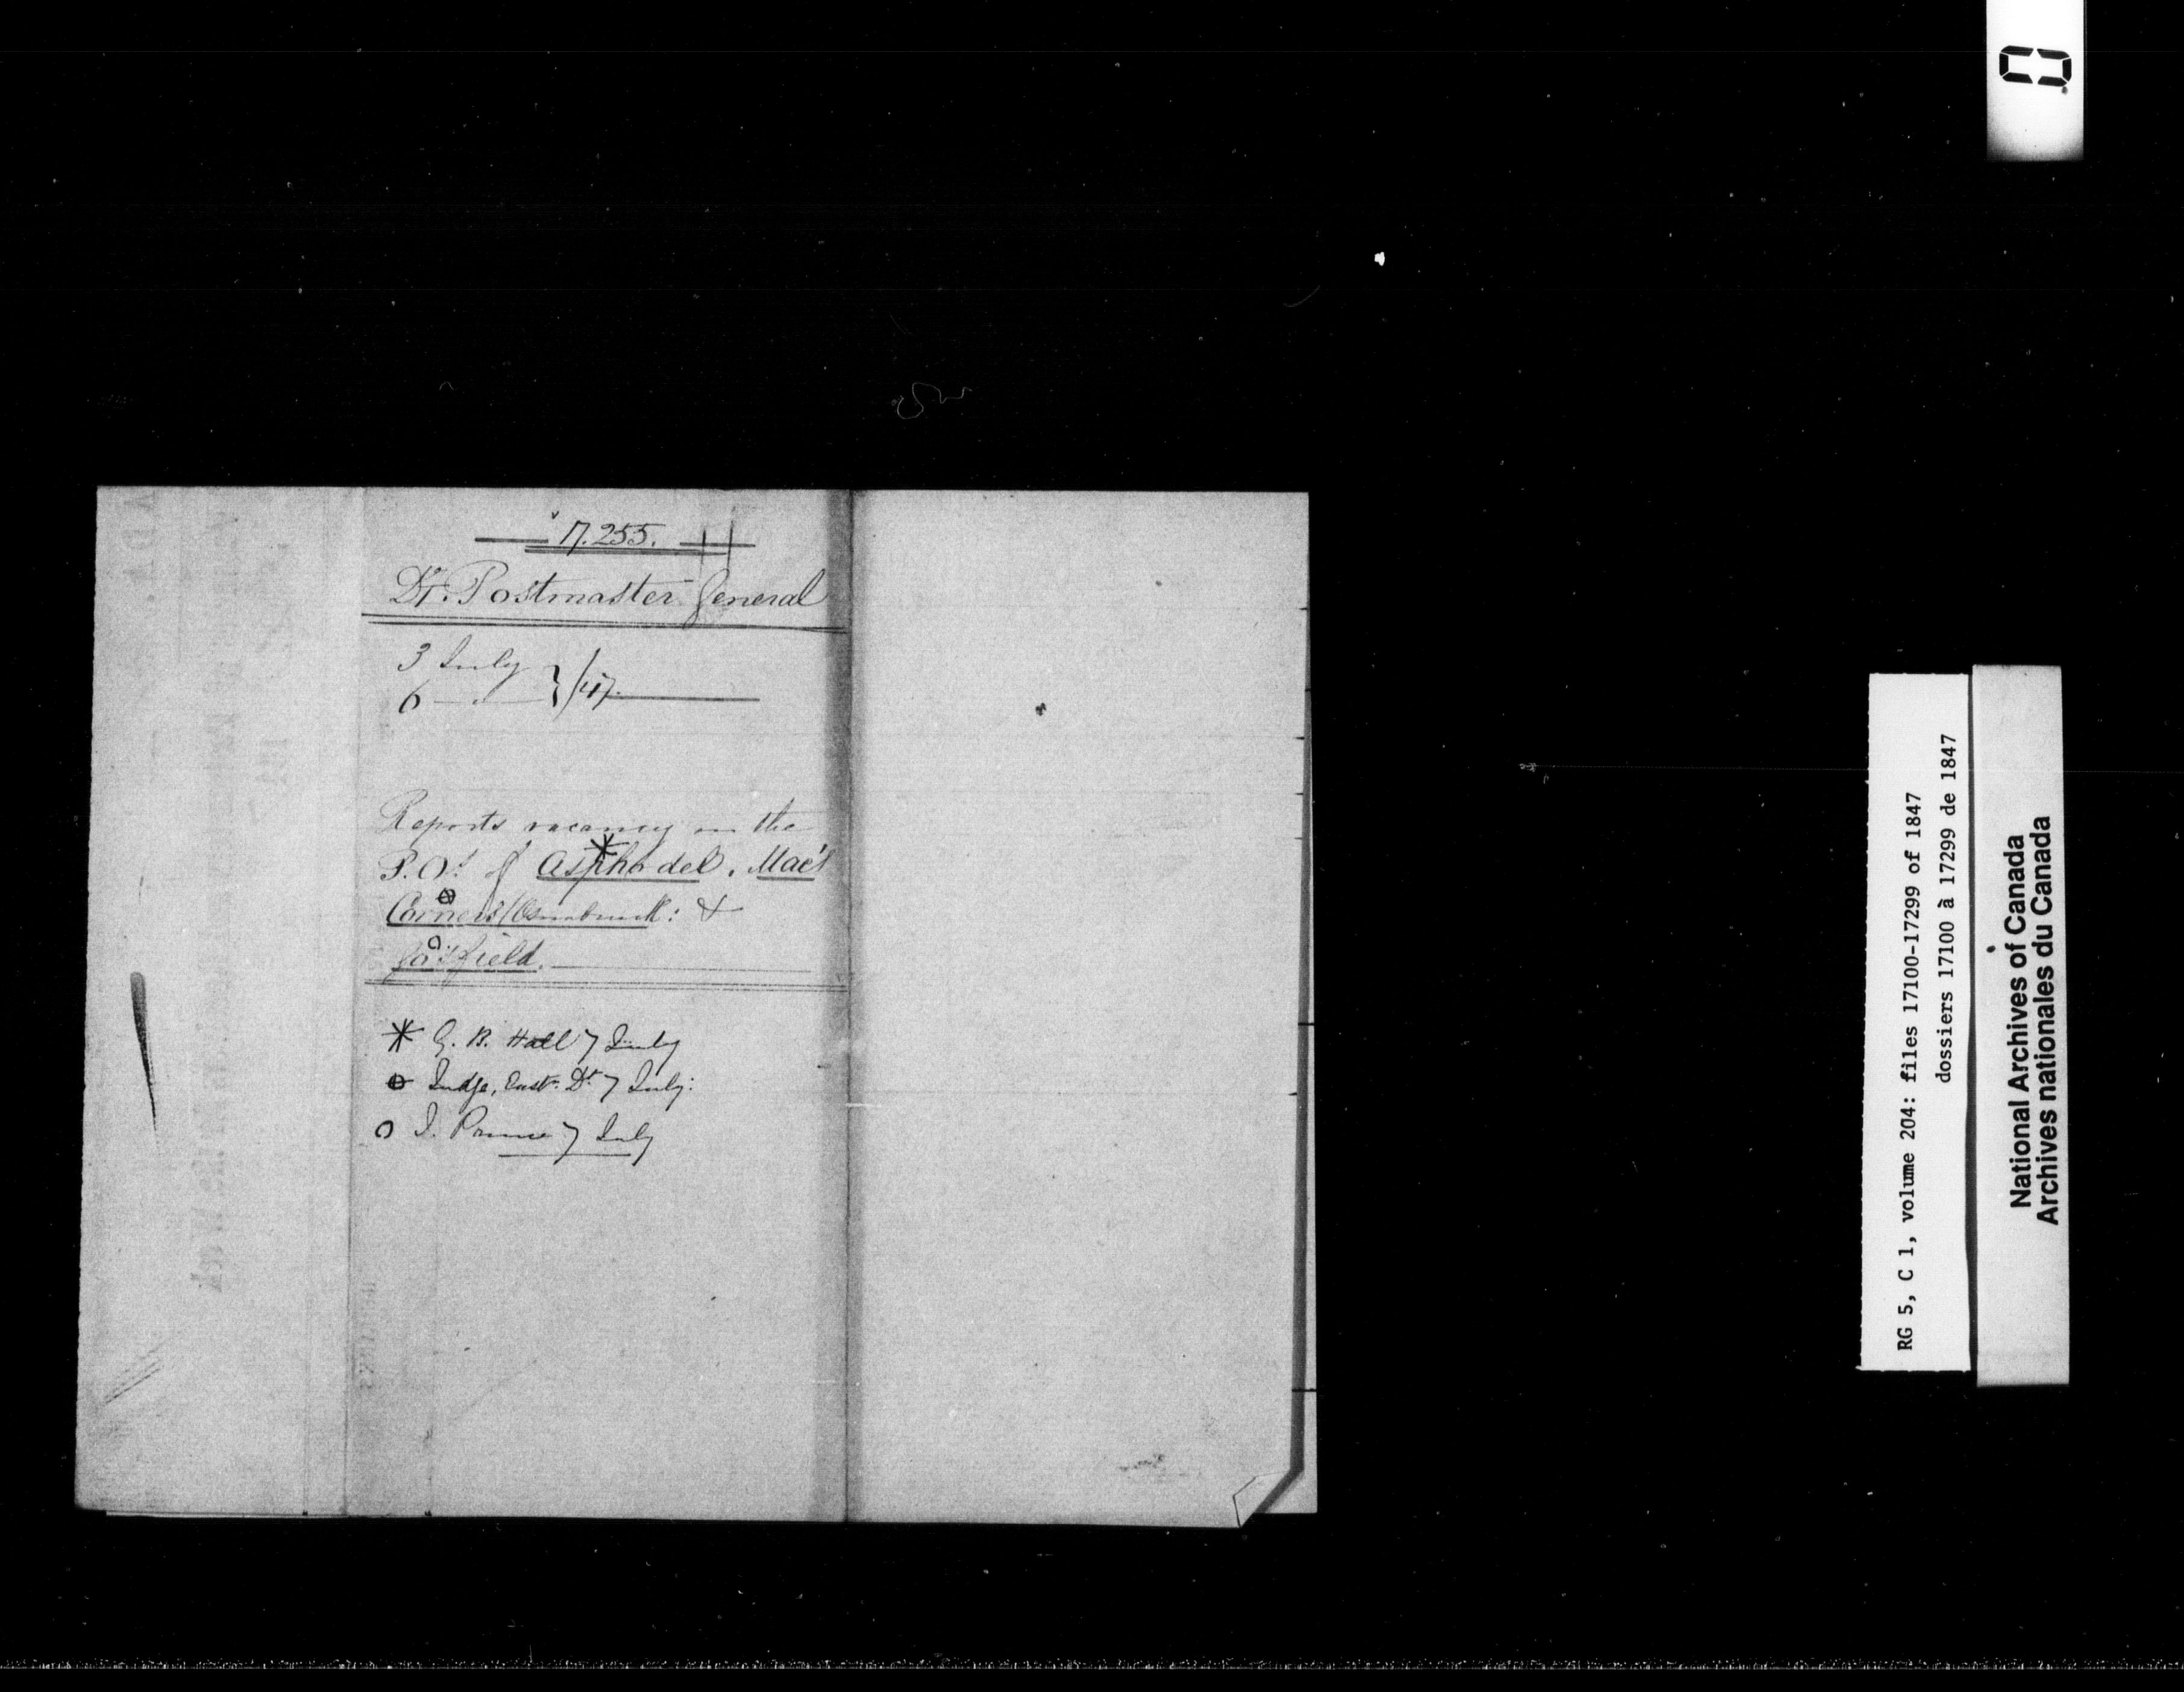 17.255.
Dy. Postmaster General
3 July
6 — " — } /47.
Reports vacancy in the
P.O.s of Asphodel, Mac's
Corners (Osnabruck: &
Gosfield.
* G. B. Hall 7 July
Judge, East. Dt. 7 July:
O J. Prince 7 July
RG 5, C 1, volume 204: files 17100-17299 of 1847
dossiers 17100 à 17299 de 1847
National Archives of Canada
Archives nationales du Canada